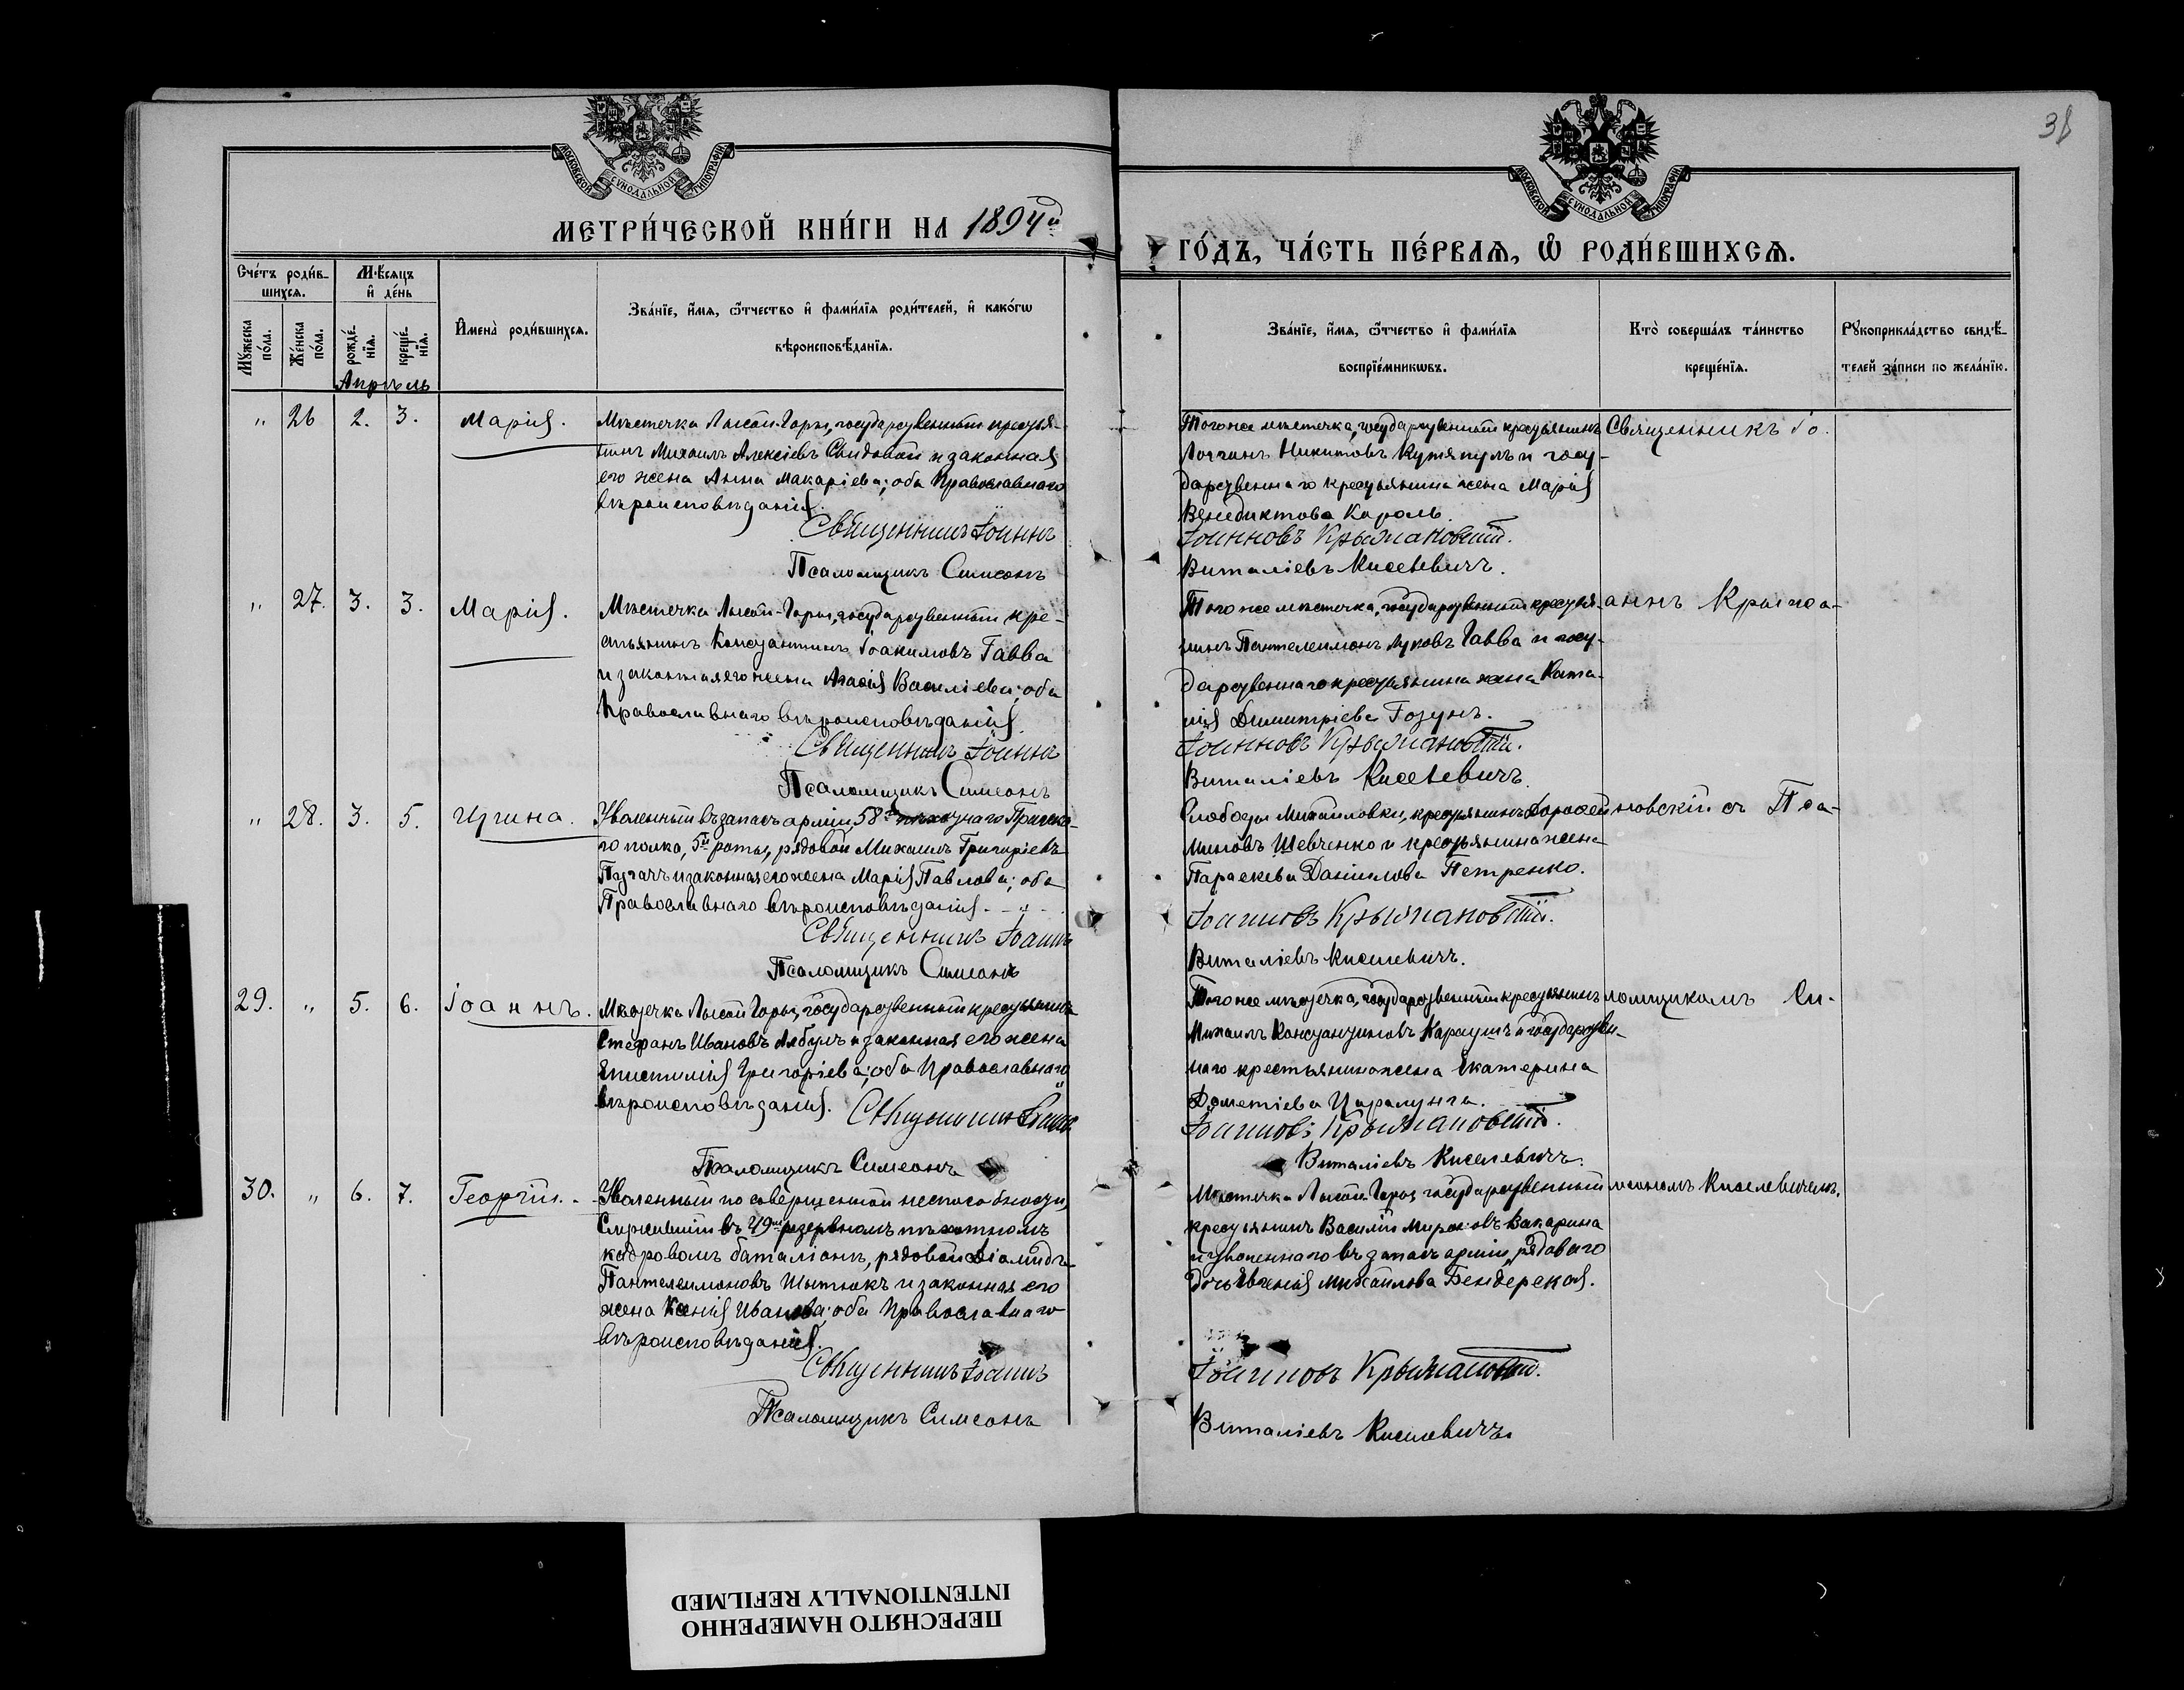 38
МОСКОВСКОЙ СѴНОДАЛЬНОЙ ТИПОГРАФІИ
МОСКОВСКОЙ СѴНОДАЛЬНОЙ ТИПОГРАФІИ
МЕТРИ́ЧЕСКОЙ КНИ́ГИ НА 1894й
ГО́ДЪ, ЧА́СТЬ ПЕ́РВАѦ, Ѡ҆ РОДИ́ВШИХСѦ.
Сче́тъ роди́в-
шихсѧ.
Мꙋ́жеска
по́ла.
Же́нска
по́ла.
Мѣ́сѧцъ
и҆ де́нь
рожде́-
нїѧ.
креще́-
нїѧ.
Апрѣль
И҆мена̀ роди́вшихсѧ.
Зва́нїе, и҆́мѧ, ѻ҆́тчество и҆ фами́лїѧ роди́телей, и҆ како́гѡ
вѣроисповѣ́данїѧ.
Зва́нїе, и҆́мѧ, ѻ҆́тчество и҆ фами́лїѧ
воспрїе́мникѡвъ.
Кто̀ соверша́лъ та́инство
креще́нїѧ.
Рꙋкоприкла́дство свидѣ́-
телей за́писи по жела́нїю.
" 26 2. 3. Марія.
Мѣстечка Лысой-Горы, государственный крестья-
нинъ Михаилъ Алексіевъ Свидовой и законная
его жена Анна Макаріева; оба Православнаго
вѣроисповѣданія.
Священникъ Іоаннъ
Псаломщикъ Симеонъ
Тогоже мѣстечка, государственный крестьянинъ
Логгинъ Никитовъ и госу-
дарственнаго крестьянина жена Марія
Венедиктова Король.
Іоанновъ Крыжановскій.
Виталіевъ Киселевичъ.
Священникъ Іо-
" 27. 3. 3. Марія.
Мѣстечка Лысой-Горы, государственный кре-
стьянинъ Константинъ Іоакимовъ Гавва
и законная его жена Агасія Василіева; оба
Православнаго вѣроисповѣданія.
Священникъ Іоаннъ
Псаломщикъ Симеонъ
Тогоже мѣстечка, государственный крестья-
нинъ Пантелеимонъ Луковъ Гавва и госу-
дарственнаго крестьянина жена
Димитріева Гозунъ.
Іоанновъ Крыжановскій.
Виталіевъ Киселевичъ.
аннъ Крыжа-
" 28. 3. 5. Ирина.
Уволенный въ запасъ арміи 58го пѣхотнаго
го полка, 5й роты, рядовой Михаилъ Григоріевъ
и законная его жена Марія Павлова; оба
Православнаго вѣроисповѣданія. - " -
Священникъ Іоаннъ
Псаломщикъ Симеонъ
Слободы Михайловки, крестьянинъ Дорофей
Шевченко и крестьянина жена
Параскева Даніилова Петренко.
Іоанновъ Крыжановскій.
Виталіевъ Киселевичъ.
новскій съ Пса-
29. " 5. 6. Іоаннъ.
Мѣстечка Лысой Горы, государственный крестьянинъ
Стефанъ Ивановъ Лябухъ и законная его жена
Епистимія Григоріева; оба Православнаго
вѣроисповѣданія. Священникъ Іоаннъ
Псаломщикъ Симеонъ
Тогоже мѣстечка, государственный крестьянинъ
Михаилъ Константиновъ и государствен-
наго крестьянина жена Екатерина
Дометіева Царалунга.
Іоанновъ Крыжановскій.
Виталіевъ Киселевичъ.
ломщикомъ Си-
30. " 6. 7. Георгій.
Уволенный по совершенной неспособности,
Служившій въ 49мъ резервномъ пѣхотномъ
кадровомъ баталіонѣ, рядовой Діомидъ
Пантелеимоновъ Шытюкъ и законная его
жена Ксенія Иванова; оба Православнаго
вѣроисповѣданія.
Священникъ Іоаннъ
Псаломщикъ Симеонъ
Мѣстечка Лысой-Горы государственный
крестьянинъ Василій Мироновъ Вакарина
и уволеннаго въ запасъ арміи рядоваго
дочь Евгенія Михайлова Бендерская.
Іоанновъ Крыжановскій.
Виталіевъ Киселевичъ.
меономъ Киселевичемъ.
ПЕРЕСНЯТО НАМЕРЕННО
INTENTIONALLY REFILMED